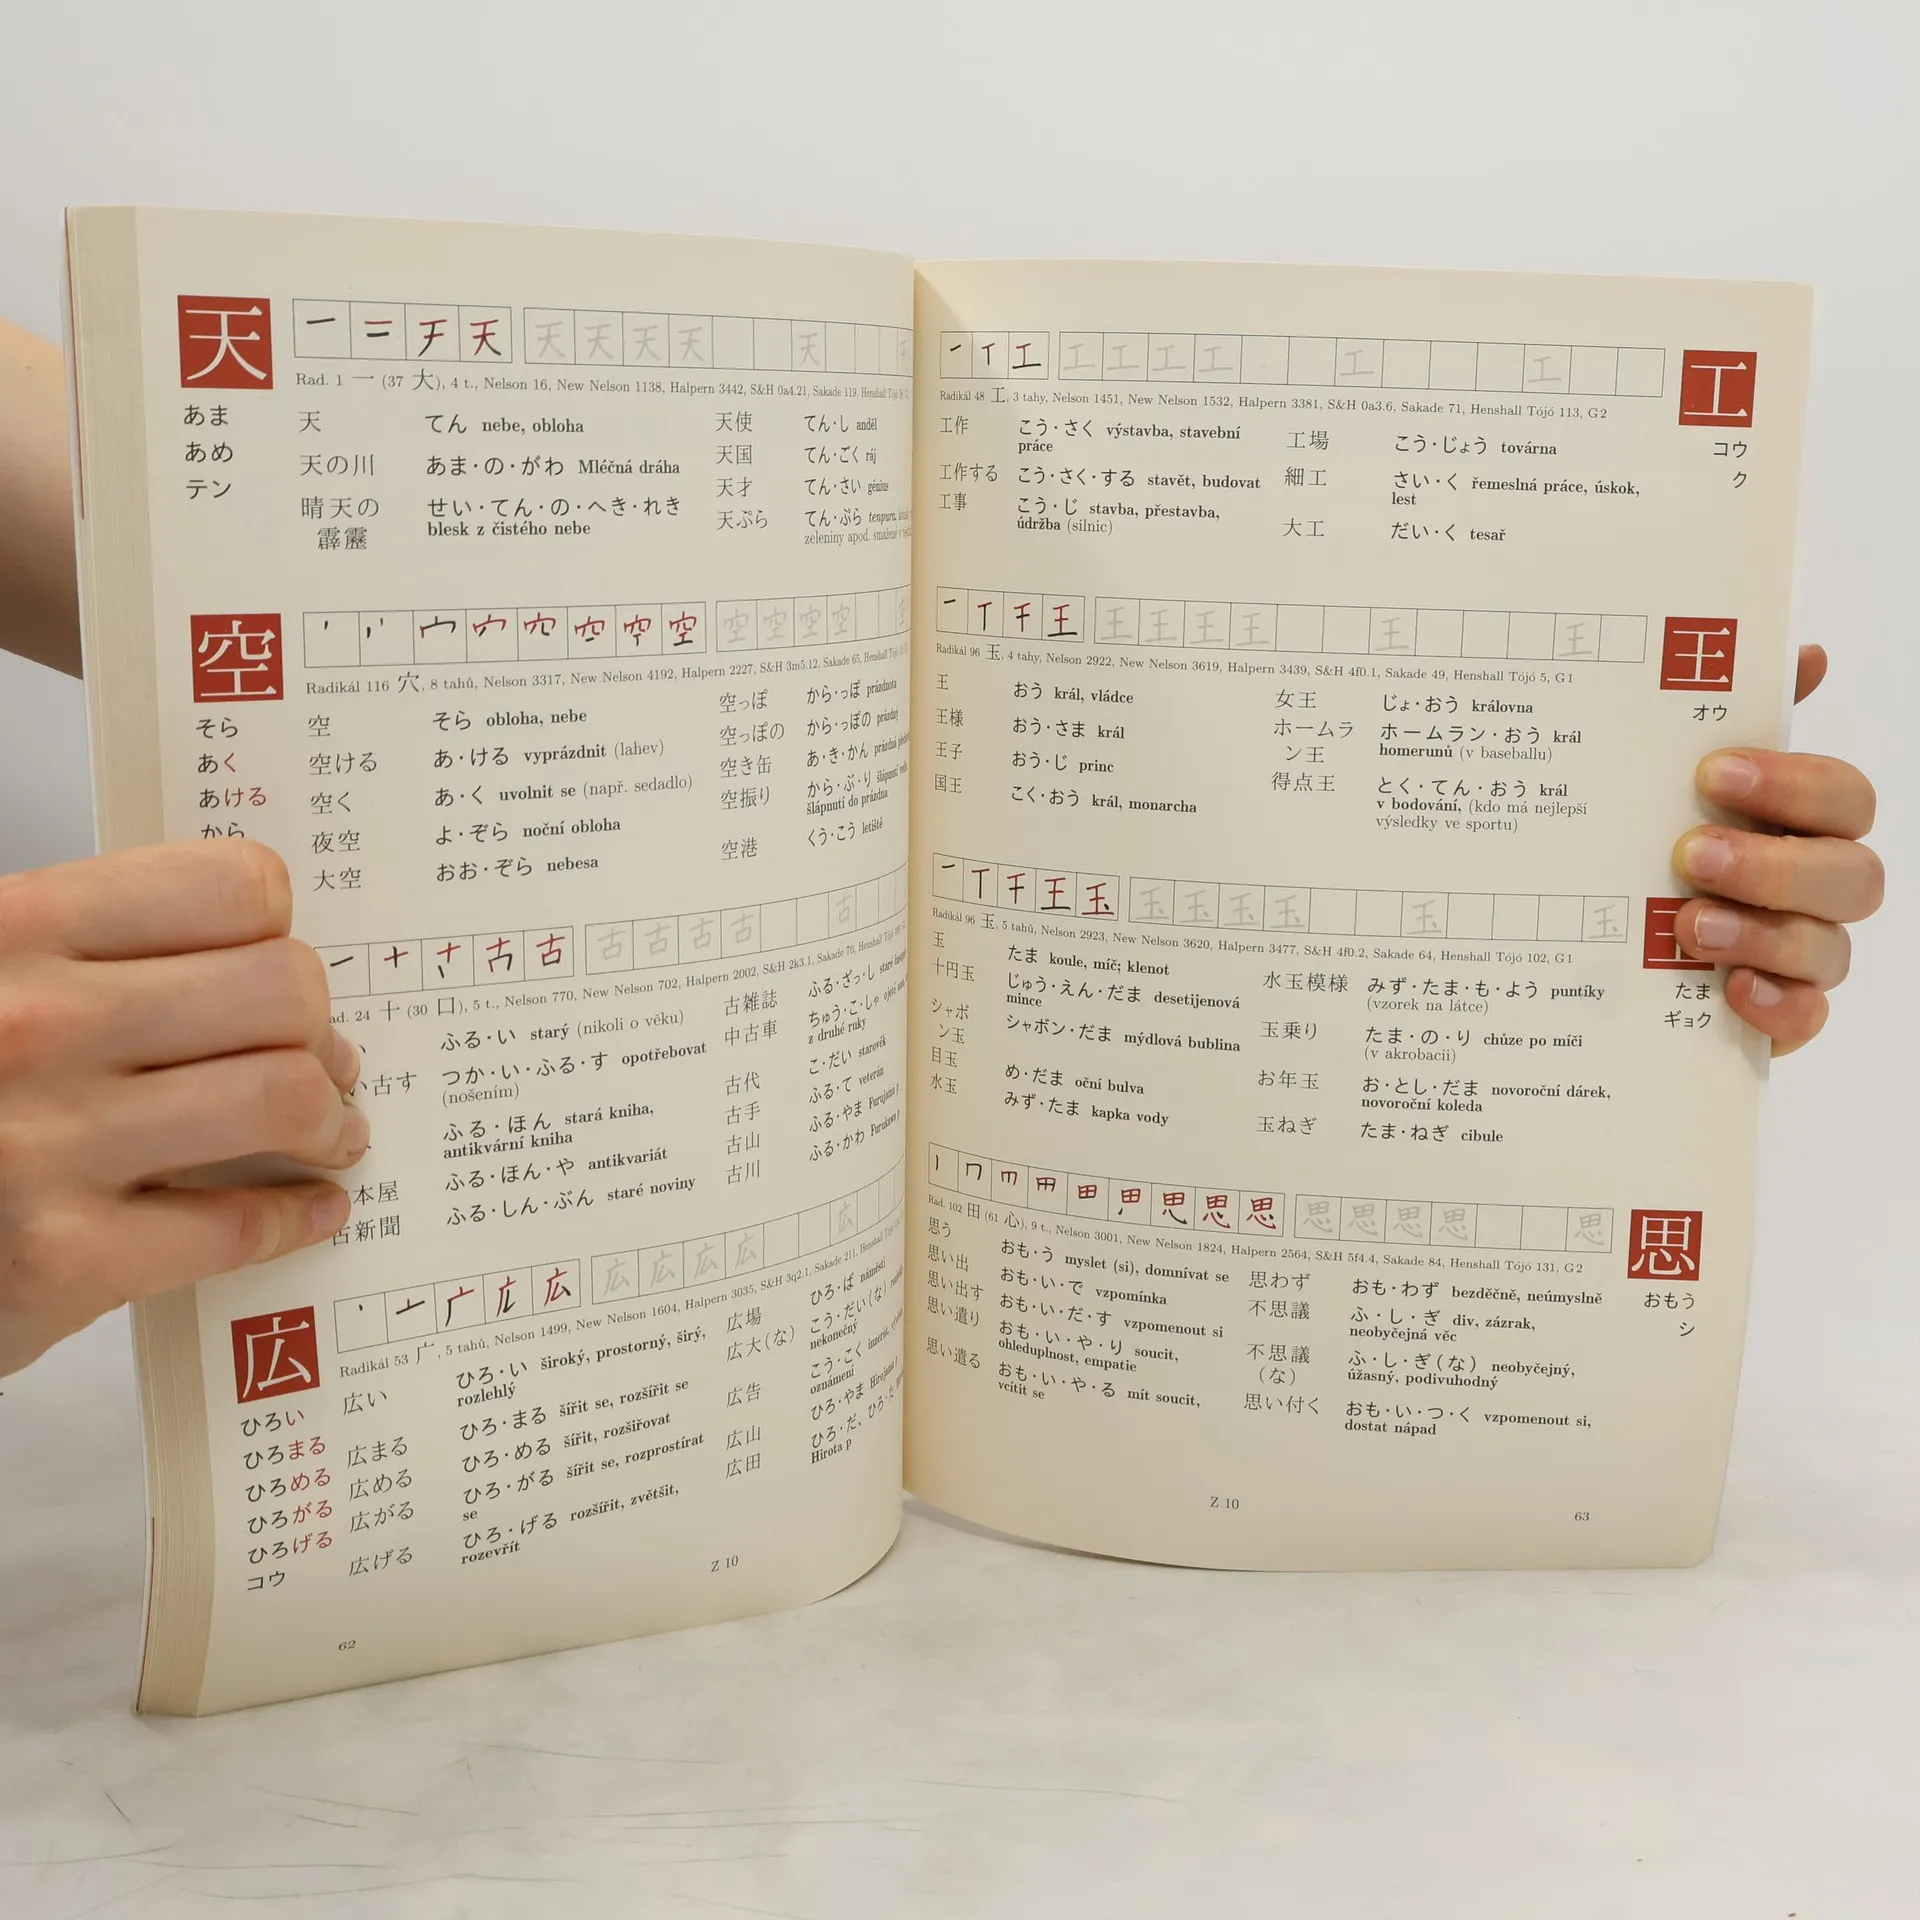 天
あま
あめ
テン
Rad. 1 一 (37 大), 4 t., Nelson 16, New Nelson 1138, Halpern 3442, S&H 0a4.21, Sakade 119, Henshall Tójó
天 てん nebe, obloha
天の川 あま・の・がわ Mléčná dráha
晴天の せい・てん・の・へき・れき
霹靂 blesk z čistého nebe
天使 てん・し anděl
天国 てん・ごく ráj
天才 てん・さい génius
天ぷら てん・ぷら tenpura,
zeleniny apod. smažené v
空
そら
あく
あける
から
Radikál 116 穴, 8 tahů, Nelson 3317, New Nelson 4192, Halpern 2227, S&H 3m5.12, Sakade 65, Henshall Tójó
空 そら obloha, nebe
空ける あ・ける vyprázdnit (lahev)
空く あ・く uvolnit se (např. sedadlo)
夜空 よ・ぞら noční obloha
大空 おお・ぞら nebesa
空っぽ から・っぽ prázdnota
空っぽの から・っぽの prázdný
空き缶 あ・き・かん prázdná
空振り から・ぶ・り šlápnutí
šlápnutí do prázdna
空港 くう・こう letiště
ad. 24 十 (30 口), 5 t., Nelson 770, New Nelson 702, Halpern 2002, S&H 2k3.1, Sakade 70, Henshall Tójó
い ふる・い starý (nikoli o věku)
い古す つか・い・ふる・す opotřebovat
(nošením)
ふる・ほん stará kniha,
antikvární kniha
本屋 ふる・ほん・や antikvariát
古新聞 ふる・しん・ぶん staré noviny
古雑誌 ふる・ざっ・し staré
中古車 ちゅう・こ・しゃ ojeté
z druhé ruky
古代 こ・だい starověk
古手 ふる・て veterán
古山 ふる・やま Furujama p
古川 ふる・かわ Furukawa p
広
ひろい
ひろまる
ひろめる
ひろがる
ひろげる
コウ
Radikál 53 广, 5 tahů, Nelson 1499, New Nelson 1604, Halpern 3035, S&H 3q2.1, Sakade 211, Henshall Tójó
広い ひろ・い široký, prostorný, širý,
rozlehlý
広まる ひろ・まる šířit se, rozšířit se
広める ひろ・める šířit, rozšiřovat
広がる ひろ・がる šířit se, rozprostírat
se
広げる ひろ・げる rozšířit, zvětšit,
rozevřít
広場 ひろ・ば náměstí
広大(な) こう・だい(な)
nekonečný
広告 こう・こく inzerát,
oznámení
広山 ひろ・やま Hirojama p
広田 ひろ・だ, ひろ・た
Hirota p
Z 10
62
工
コウ
ク
Radikál 48 工, 3 tahy, Nelson 1451, New Nelson 1532, Halpern 3381, S&H 0a3.6, Sakade 71, Henshall Tójó 113, G2
工作 こう・さく výstavba, stavební
práce
工作する こう・さく・する stavět, budovat
工事 こう・じ stavba, přestavba,
údržba (silnic)
工場 こう・じょう továrna
細工 さい・く řemeslná práce, úskok,
lest
大工 だい・く tesař
王
オウ
Radikál 96 玉, 4 tahy, Nelson 2922, New Nelson 3619, Halpern 3439, S&H 4f0.1, Sakade 49, Henshall Tójó 5, G1
王 おう král, vládce
王様 おう・さま král
王子 おう・じ princ
国王 こく・おう král, monarcha
女王 じょ・おう královna
ホームラ ホームラン・おう král
ン王 homerunů (v baseballu)
得点王 とく・てん・おう král
v bodování, (kdo má nejlepší
výsledky ve sportu)
たま
ギョク
Radikál 96 玉, 5 tahů, Nelson 2923, New Nelson 3620, Halpern 3477, S&H 4f0.2, Sakade 64, Henshall Tójó 102, G1
玉 たま koule, míč; klenot
十円玉 じゅう・えん・だま desetijenová
mince
シャボ シャボン・だま mýdlová bublina
ン玉
目玉 め・だま oční bulva
水玉 みず・たま kapka vody
水玉模様 みず・たま・も・よう puntíky
(vzorek na látce)
玉乗り たま・の・り chůze po míči
(v akrobacii)
お年玉 お・とし・だま novoroční dárek,
novoroční koleda
玉ねぎ たま・ねぎ cibule
思
おもう
シ
Rad. 102 田 (61 心), 9 t., Nelson 3001, New Nelson 1824, Halpern 2564, S&H 5f4.4, Sakade 84, Henshall Tójó 131, G2
思う おも・う myslet (si), domnívat se
思い出 おも・い・で vzpomínka
思い出す おも・い・だ・す vzpomenout si
思い遣り おも・い・や・り soucit,
ohleduplnost, empatie
思い遣る おも・い・や・る mít soucit,
vcítit se
思わず おも・わず bezděčně, neúmyslně
不思議 ふ・し・ぎ div, zázrak,
neobyčejná věc
不思議 ふ・し・ぎ(な) neobyčejný,
(な) úžasný, podivuhodný
思い付く おも・い・つ・く vzpomenout si,
dostat nápad
Z 10
63